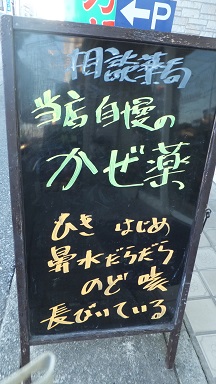 P
相談薬局
当店自慢の
かぜ薬
ひき はじめ
鼻水だらだら
のど 咳
長びいている